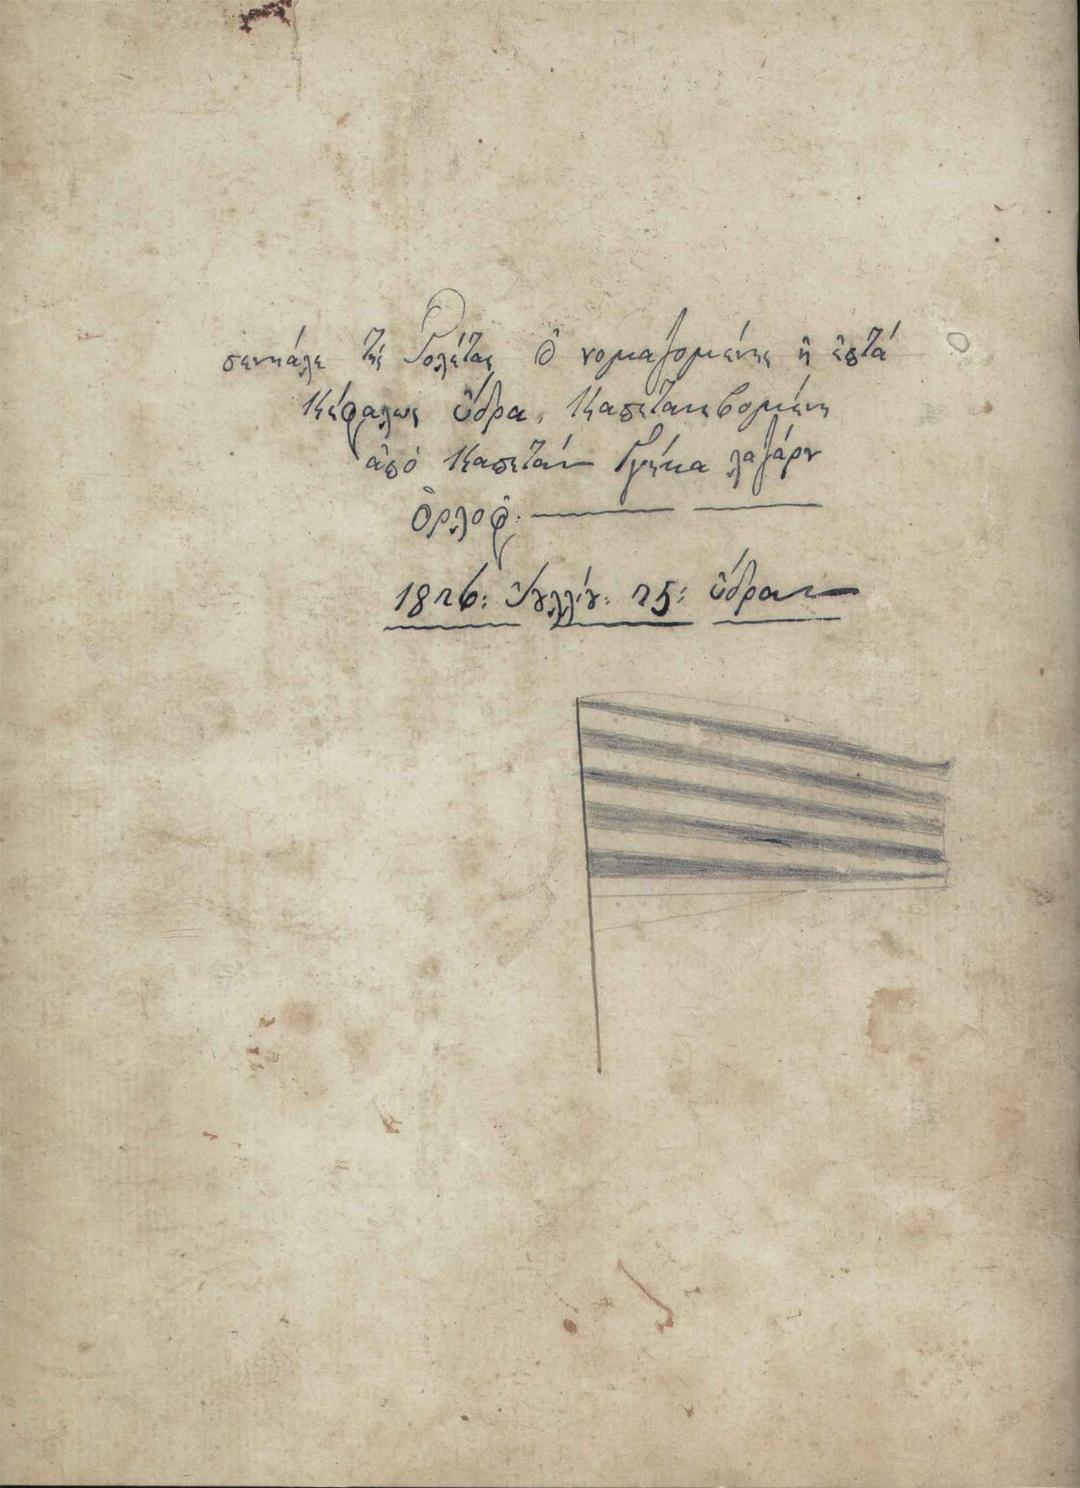 σενιάλε τῆς Γολέτας ὀ νομαζομένης ἡ ἑπτὰ
Κέφαλως ὕδρα, Καπετανεβομένη
ἀπὸ Καπετάν Γγίκα λαζάρȣ
Ὀρλόφ.
1826: Ἰȣλλίȣ: 25: ὕδρα